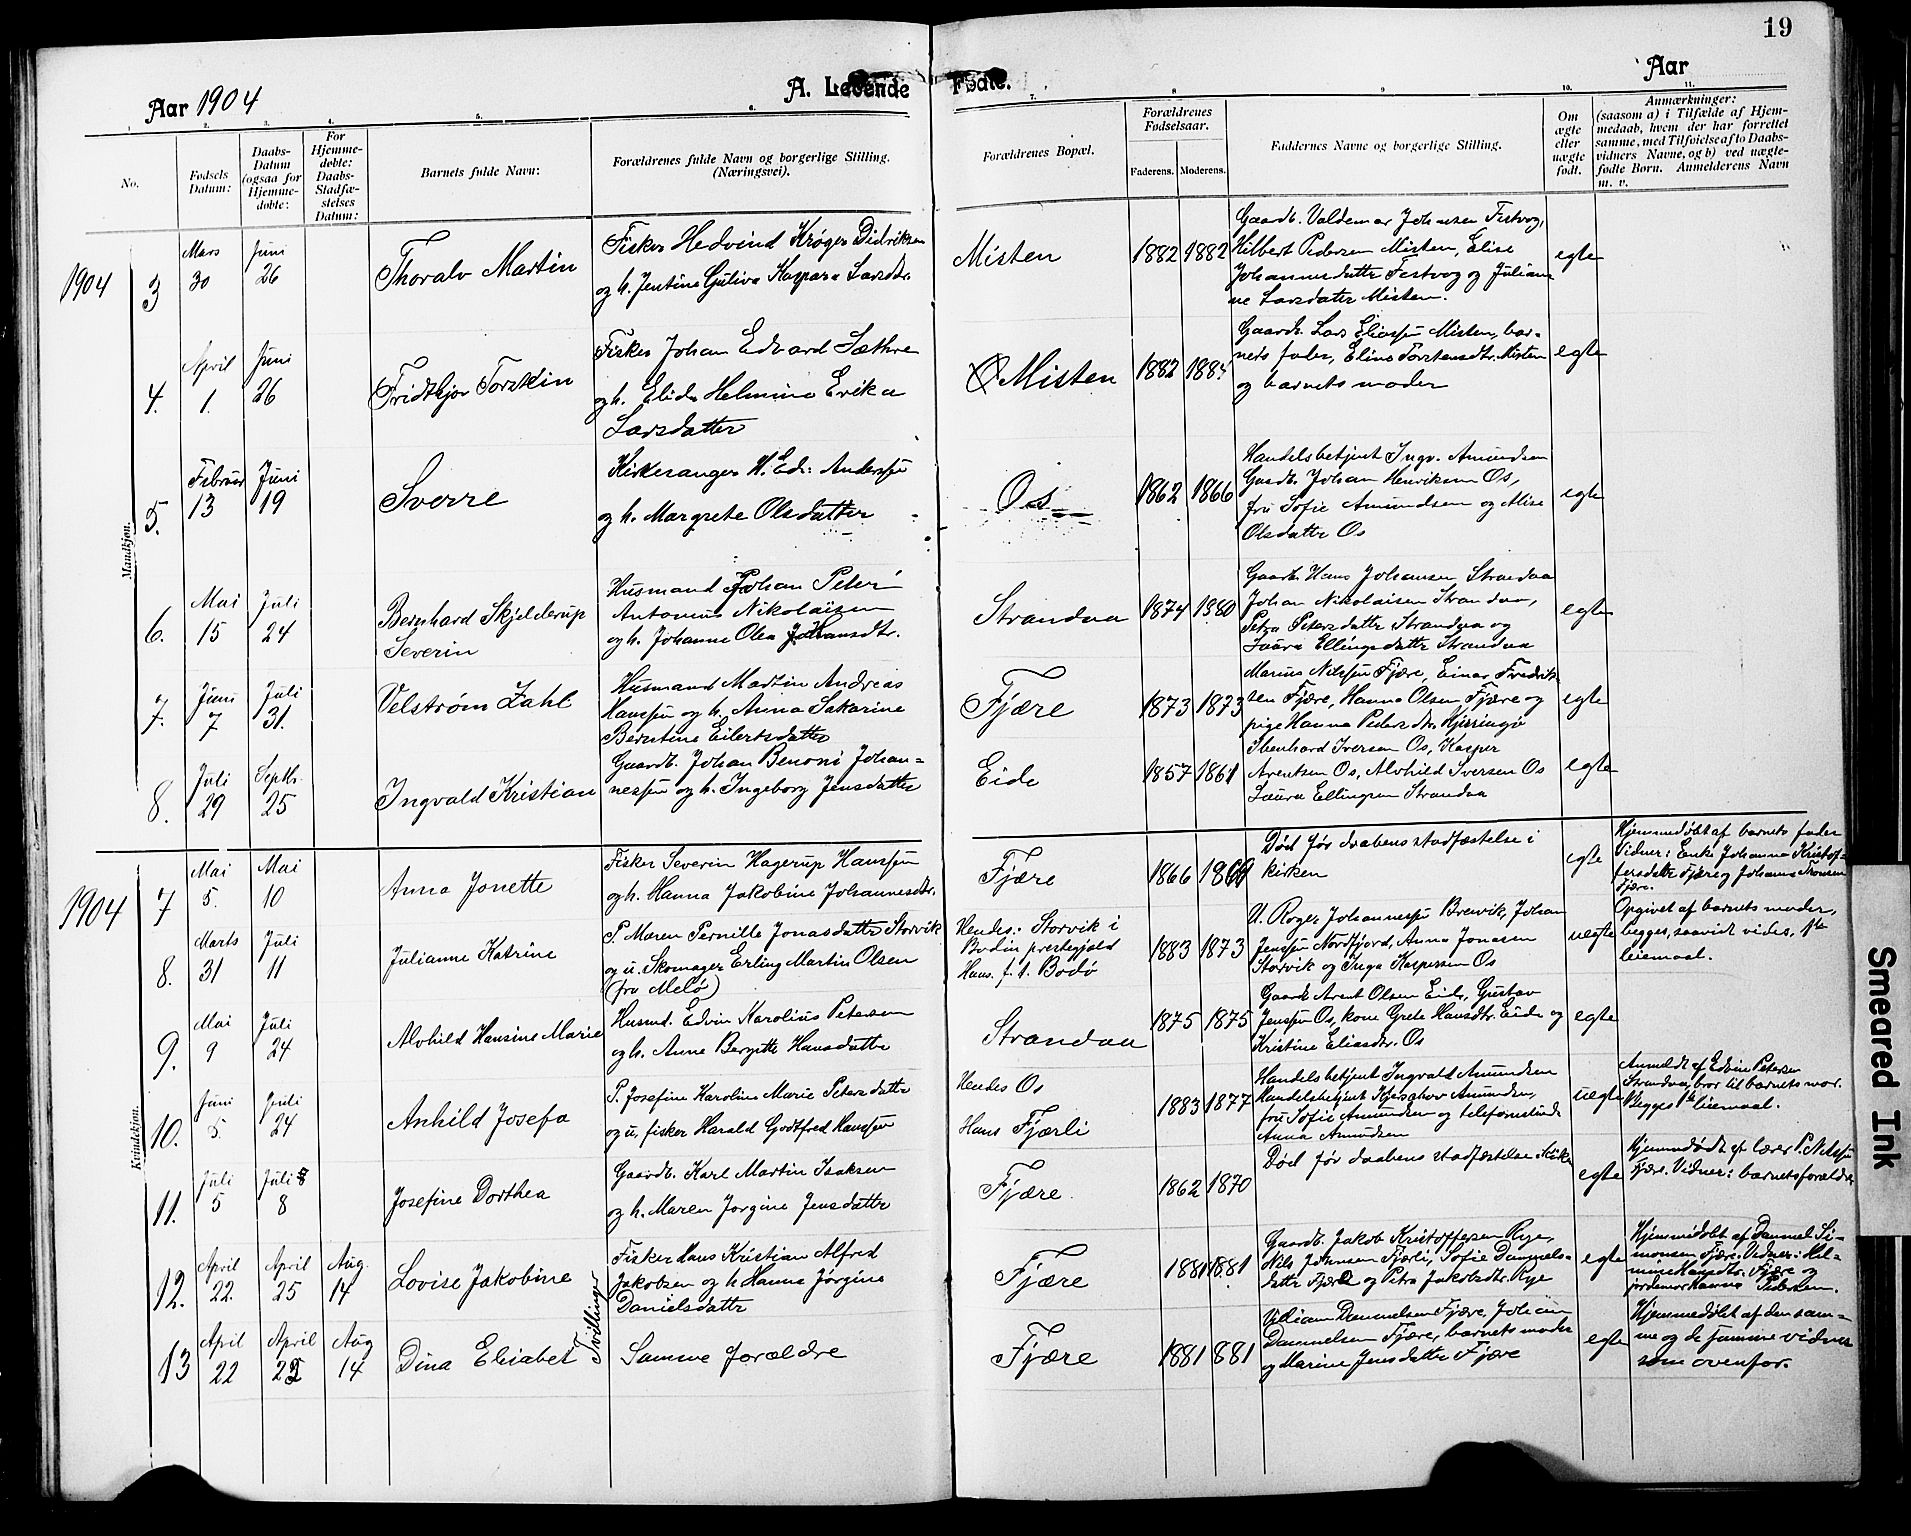 19
Aar 1904
A. Levende Fødte.
Aar
1. 2. 3. 4. 5. 6. 7. 8 9 10. 11.
No.
Fødsels Datum:
Daabs-Datum (ogsaa for Hjemme-døbte:
For Hjemme-døbte: Daabs-Stadfæ-stelses Datum:
Barnets fulde Navn:
Forældrenes fulde Navn og borgerlige Stilling. (Næringsvei).
Forældrenes Bopæl.
Forældrenes Fødselsaar.
Faderens. Moderens.
Faddernes Navne og borgerlige Stilling.
Om ægte eller uægte født.
Anmærkninger:
(saasom a) i Tilfælde af Hjem-
medaab, hvem der har forrettet
samme, med Tilføielse af to Daabs-
vidners Navne, og b) ved uægte-
fødte Børn. Anmelderens Navn
m. v.
Mandkjøn.
1904
3
Mars 30
Juni 26
Thoralv Martin
Fisker Hedvind Krøger Didriksen
og h. Jentine Guliva Kaspara Larsdtr.
Misten
1882 1882
Gaardb. Valdemar Johansen Festvog,
Hilbert Pedersen Misten, Elise
Johannesdatter Festvog og Julian-
ne Larsdatter Misten.
egte
4.
April 1.
Juni 26
Fridthjov Torstein
Fisker Johan Edvard Sæthre
og h. Elida Helmine Erika
Larsdatter
Misten
1882
Gaardb. Lars Eliassen Misten, bar-
nets fader, Eline Torstensdtr. Misten
og barnets moder
egte
5.
Februar 13
Juni 19
Sverre
Kirkesanger H. Edv. Anderssen
og h. Margrete Olsdatter
Os
1862 1866
Handelsbetjent Ingv. Amundsen
Gaardb. Johan Henriksen Os,
fru Sofie Amundsen og Alise
Olsdatter Os
egte
6.
Mai 15
Juli 24
Bernhard Skjelderup
Severin
Husmand Johan Peter
Antonius Nikolaisen
og h. Johanne Olea Johansdtr.
Strandaa
1874 1880
Gaardb. Hans Johansen Strandaa
Johan Nikolaisen Strandaa,
Petra Petersdatter Strandaa og
Laura Ellingsdatter Strandaa
egte
7.
Juni 7
Juli 31.
Velstrøm Zahl
Husmand Martin Andreas
Hanssen og h. Anna Sakarine
Berntine Eilertsdatter
Fjære
1873 1873
Marius Nilssen Fjære, Einar Fredrik-
sen Fjære, Hanna Olsen Fjære og
pige Hanna Petersdtr. Kjerringø
egte
8.
Juli 29
Septbr. 25
Ingvald Kristian
Gaardb. Johan Benoni Johan-
nessen og h. Ingeborg Jensdatter
Eide
1857 1861
Ibenhard Iversen Os, Kasper
Arentsen Os, Alvhild Iversen Os
Laura Ellingsen Strandaa
egte
Kvindekjøn.
1904
7
Mai 5.
Mai 10
Anna Jonette
Fisker Severin Hagerup Hanssen
og h. Hanna Jakobine Johannesdtr.
Fjære
1866
Død før daabens stadfæstelse i
kirken
egte
Hjemmedøbt af barnets fader
Vidner: Enke Johanna Kristof-
fersdatter Fjære og Johanna Tronsen
Fjære.
8.
Marts 31
Juli 11
Julianne Katrine
P. Maren Pernille Jonasdatter Storvik
og u. Skomager Erling Martin Olsen
(fra Melø)
Hendes: Storvik i
Bodin prestegjeld
Hans. f. t. Bodø
1883 1873
U. Roger Johannessen Breivik, Johan
Jenssen Nordfjord, Anna Jonasen
Storvik og Inga Kaspersen Os
uegte
Opgivet af barnets moder,
begges, saavidt vides, 1ste
leiemaal.
9.
Mai 9
Juli 24
Alvhild Hansine Marie
Husmd. Edvin Karolius Petersen
og h. Anne Bergitte Hansdatter
Strandaa
1875 1875
Gaardb. Arent Olsen Eide, Gustav
Jenssen Os, kone Grete Hansdtr. Eide og
Kristine Eliasdtr. Os
egte
10.
Juni 5.
Juli 24
Anhild Josefa
P. Josefine Karoline Marie Petersdatter
og u. fisker Harald Godtfred Hanssen
Hendes Os
Hans Fjærli
1883 1877
Handelsbetjent Ingvald Amundsen
Handelsbetjent Kjelshov Amundsen,
fru Sofie Amundsen og telefonistinde
Anna Amundsen
uegte
Anmeldt af Edvin Petersen
Strandaa, bror til barnets mor.
Begges 1ste leiemaal.
11.
Juli 5
Juli 8
8
Josefine Dorthea
Gaardb. Karl Martin Isaksen
og h. Maren Jørgine Jensdatter
Fjære
1862 1870
Død før daabens stadfæstelse i kirke
egte
Hjemmedøbt af lærer P. Nilssen
Fjære. Vidner: barnets forældre
12.
April 22.
April 25
Aug. 14
Lovise Jakobine
Tvillinger
Fisker Hans Kristian Alfred
Jakobsen og h Hanna Jørgine
Danielsdatter
Fjære
1881 1881
Gaardb. Jakob Kristoffersen Rye,
Nils Johnsen Fjærli, Sofie Danmels-
datter Fjære og Petra Jakobsdtr. Rye
egte
Hjemmedøbt af Danmel Si-
monsen Fjære. Vidner: Hel-
mine Hansdtr. Fjære og
jordmor Hanna Pedersen.
13
April 22
April
Aug 14
Dina Elisabet
Samme forældre
Fjære
1881 1881
Vilian Danmelsen Fjære, Johan
Danmelsen Fjære, barnets moder
og Marine Jensdatter Fjære
egte
Hjemmedøbt af den sam-
me og de samme vidner
som ovenfor.
Smeared Ink